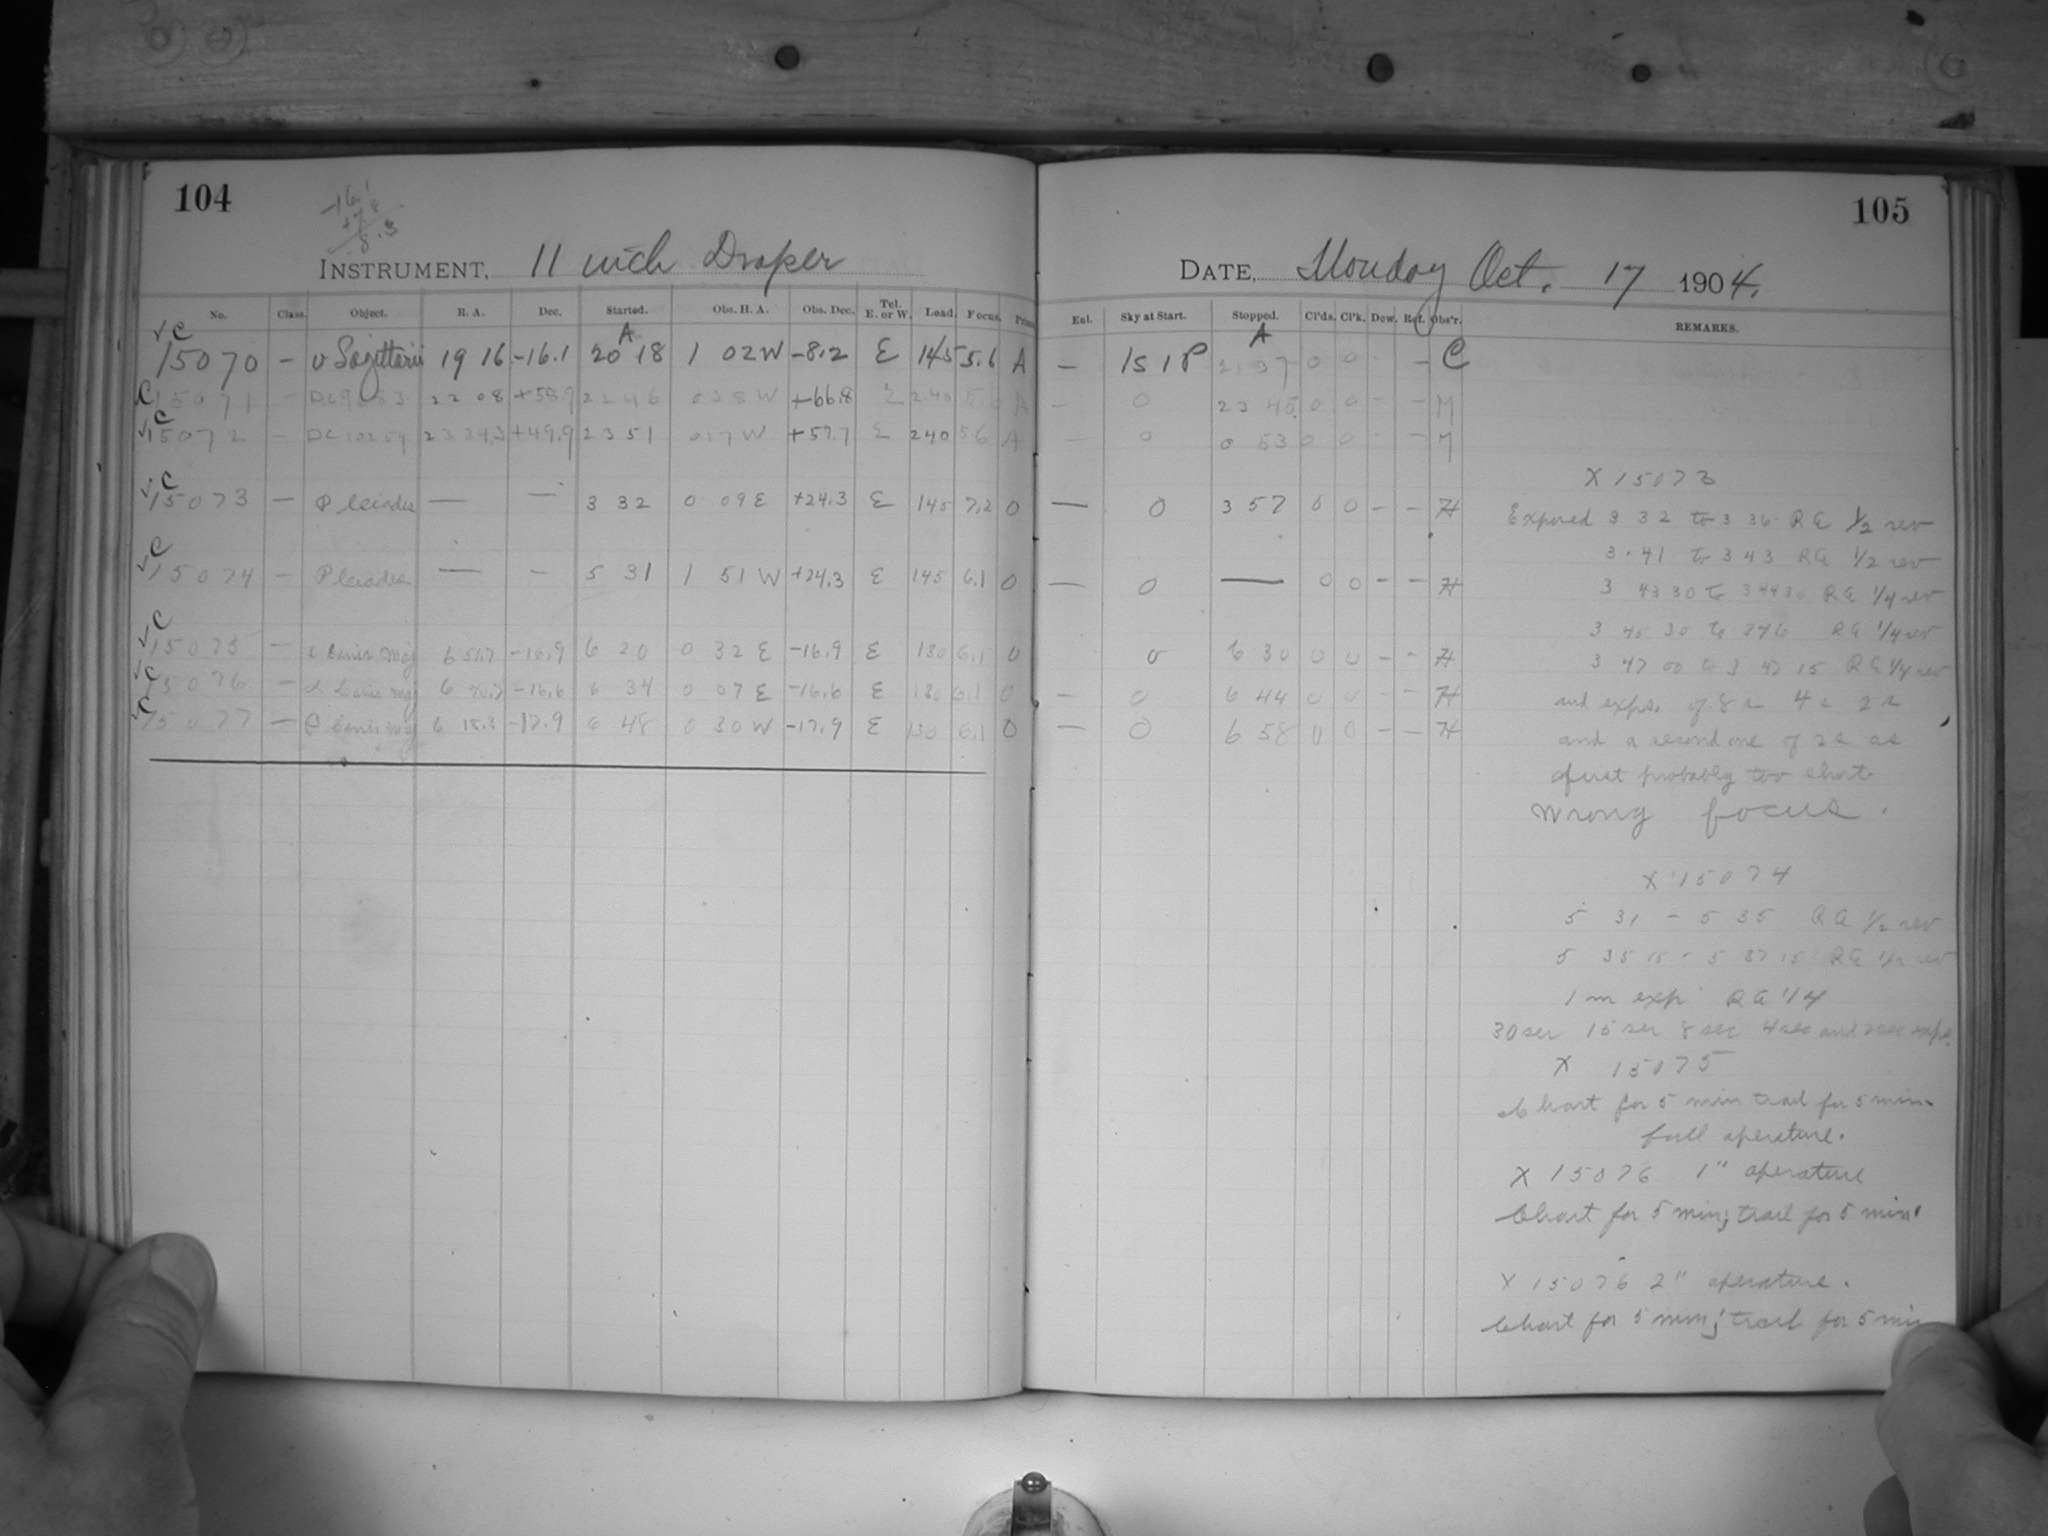 104
-16.1
+7.8
8.3
INSTRUMENT, 11 inch Draper
No. Class. Object. R. A. Dec. Started. Obs. H. A. Obs. Dec. Tel. E. or W. Load. Focus.
A
√C
15070 — υ Sagittarii 19 16 -16.1 20 18 1 02 W -8.2 E 145 5.6 A
C 15071 — 22 08 22 46 0 38 W +66.8 E 240 A
√C
15072 — DC 10254 +49.9 23 51 0 17 W +57.7 E 240 5.6 A
√C
15073 — Pleiades — — 3 32 0 09 E +24.3 E 145 7.2 O
√C
15074 — Pleiades — — 5 31 1 51 W +24.3 E 145 6.1 O
√C
15075 — Canis Maj -16.9 6 20 0 32 E -16.9 E 130 6.1 O
√C
15076 — α Canis Maj -16.6 6 34 0 07 E -16.6 E 130 6.1 O
√C
15077 — β Canis Maj -17.9 6 48 0 30 W -17.9 E 130 6.1 O
105
DATE, Monday Oct. 17 1904.
Enl. Sky at Start. Stopped. Cl'ds. Cl'k. Dew. Ref. Obs'r. REMARKS.
A
— 1s 1P 21 37 0 0 - - C
— 0 23 45 0 0 - - M
— 0 0 53 0 0 - - M
— 0 3 57 0 0 - - H
— 0 — 0 0 - - H
0 6 30 0 0 - - H
— 0 6 44 0 0 - - H
— 0 6 58 0 0 - - H
X 15073
Exposed 3 32 to 3 36 RA 1/2 rev
3 41 to 3 43 RA 1/2 rev
3 43 30 to 3 44 30 RA 1/4 rev
3 45 30 to 3 46 RA 1/4 rev
3 47 00 to 3 47 15 RA 1/4 rev
and exps. of 8s 4s 2s
and a second one of 2s as
first probably too short.
Wrong focus.
X 15074
5 31 - 5 35 RA 1/2 rev
5 35 15 - 5 37 15 RA rev
1 m exp RA 1/4
30 sec 15 sec 8 sec 4 sec and 2 sec exps.
X 15075
Chart for 5 min trail for 5 min.
full aperature.
X 15076 1" aperature
Chart for 5 min; trail for 5 min.
X 15076 2" aperature.
Chart for 5 min; trail for 5 min